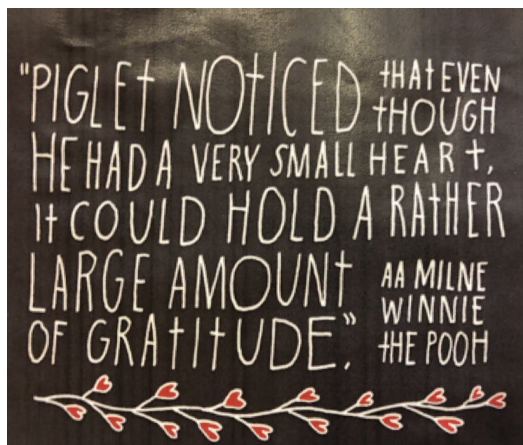 "PIGLEt NOtICED tHAt EVEN tHOUGH
HE HAD A VERY SMALL HEARt,
It COULD HOLD A RAtHER
LARGE AMOUNt
OF GRAtItUDE."
AA MILNE
WINNIE
tHE POOH